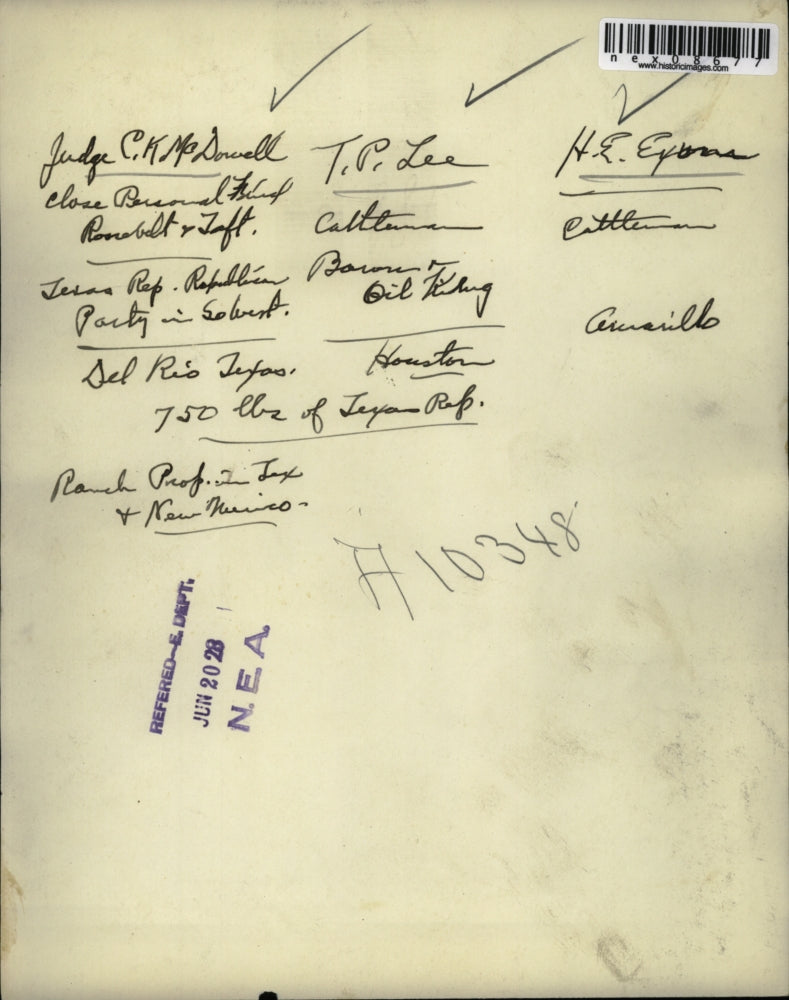 nex08677
www.historicimages.com
Judge C.K McDowell
Close Personal Friend
Roosevelt & Taft.
Texas Rep. Republican
Party in
Del Rio Texas.
T.P. Lee
Cattleman
Baron &
Oil King
Houston
H.E.
Cattleman
Amarillo
750 lbs of Texas Rep.
Ranch Prop. in Tex
& New Mexico
H10348
REFERED—E. DEPT.
JUN 20 28
N.E.A.